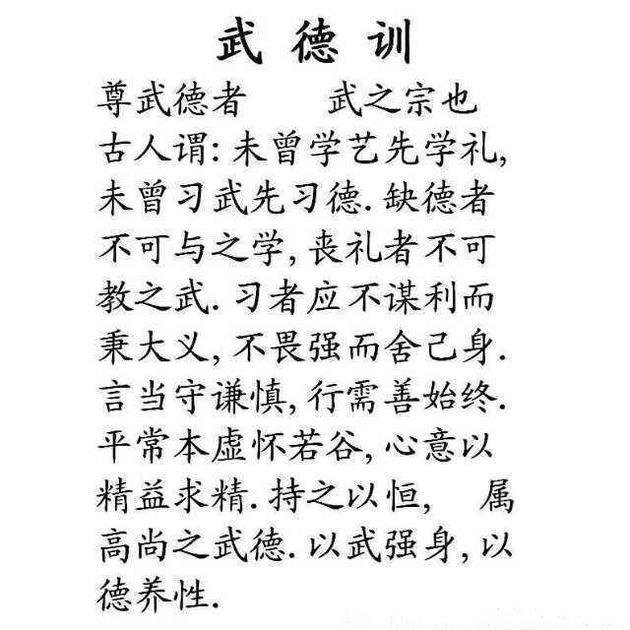 武德训
尊武德者 武之宗也
古人谓: 未曾学艺先学礼,
未曾习武先习德. 缺德者
不可与之学, 丧礼者不可
教之武. 习者应不谋利而
秉大义, 不畏强而舍己身.
言当守谦慎, 行需善始终.
平常本虚怀若谷, 心意以
精益求精. 持之以恒, 属
高尚之武德. 以武强身, 以
德养性.